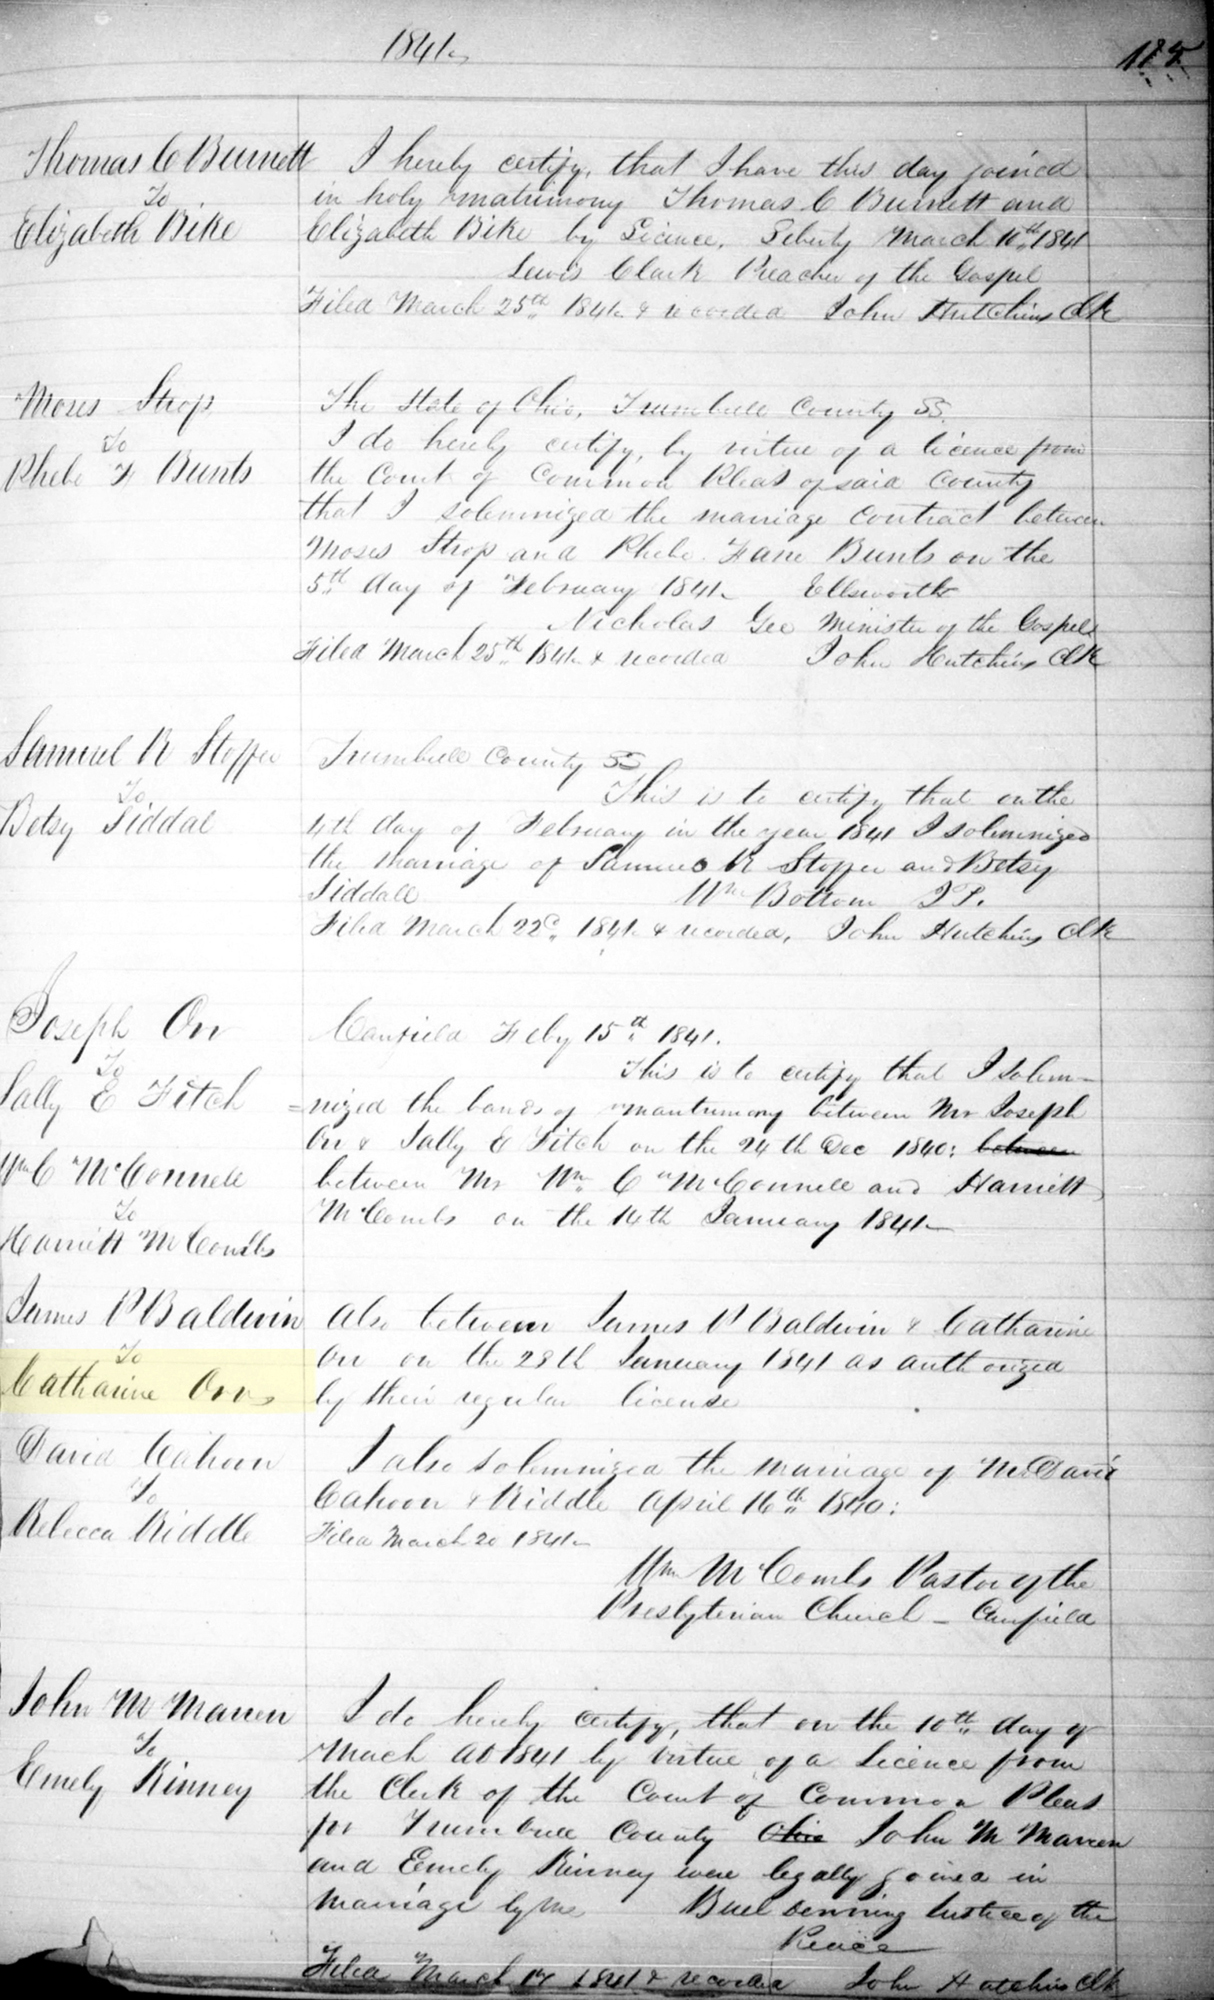 1841
185
Thomas C Burnett
To
Elizabeth Bike
I hereby certify, that I have this day joined
in holy matrimony Thomas C Burnett and
Elizabeth Bike by Licence, Liberty March 10th 1841
Lewis Clark Preacher of the Gospel
Filed March 25th 1841 & recorded John Hutchins Clk
Moses Strop
To
Phebe F Bunts
The State of Ohio, Trumbull County SS.
I do hereby certify, by virtue of a licence from
the Court of Common Pleas of said County
that I solemnized the marriage contract between
Moses Strop and Phebe Jane Bunts on the
5th day of February 1841 Ellsworth
Nicholas Gee Minister of the Gospel
Filed March 25th 1841 & recorded John Hutchins Clk
Samuel R Stopper
To
Betsy Siddal
Trumbull County SS
This is to certify that on the
4th day of February in the year 1841 I solemnized
the marriage of Samuel R Stopper and Betsy
Siddall Wm Bottom J P.
Filed March 22d 1841 & recorded, John Hutchins Clk
Joseph Orr
To
Sally E Fitch
Wm C McConnell
To
Harriett McCombs
Canfield Feby 15th 1841.
This is to certify that I solem-
=nized the bands of mantrimony between Mr Joseph
Orr & Sally E Fitch on the 24th Dec 1840: between
between Mr Wm C McConnell and Harriett
McCombs on the 14th January 1841
James P Baldwin
To
Catharine Orr
Also between James P Baldwin & Catharine
Orr on the 28th January 1841 as authorized
by their regular license
David Cahoon
To
Rebecca Riddle
I also solemnized the marriage of Mr David
Cahoon & Riddle April 16th 1840:
Filed March 20 1841
Wm McCombs Pastor of the
Presbyterian Church - Canfield
John M Marren
To
Emely Kinney
I do hereby certify, that on the 10th day of
March AD 1841 by virtue of a Licence from
the Clerk of the Court of Common Pleas
for Trumbull County Ohio John M Marren
and Emely Kinney were legally joined in
marriage by me Buel Denning Justice of the
Peace
Filed March 17 1841 & recorded John Hutchins Clk